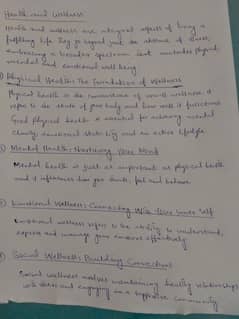 Health and Wellness
Health and wellness are integral aspects of living a
fulfilling life. They go beyond just the absence of illness,
embracing a broader spectrum that includes physical,
mental and emotional well being
① Physical Health: The Foundation of Wellness
Physical health is the cornerstone of overall wellness. it
refers to the state of your body and how well it functions
Good physical health is essential for achieving mental
clarity, emotional stability and an active lifestyle
② Mental Health: Nurturing Your Mind
Mental health is just as important as physical health
and it influences how you think, feel and behave
③ Emotional Wellness: Connecting With Your Inner Self
Emotional wellness refers to the ability to understand,
express and manage your emotions effectively
④ Social Wellness: Building Connections
Social wellness involves maintaining healthy relationships
with others and engaging in a supportive community